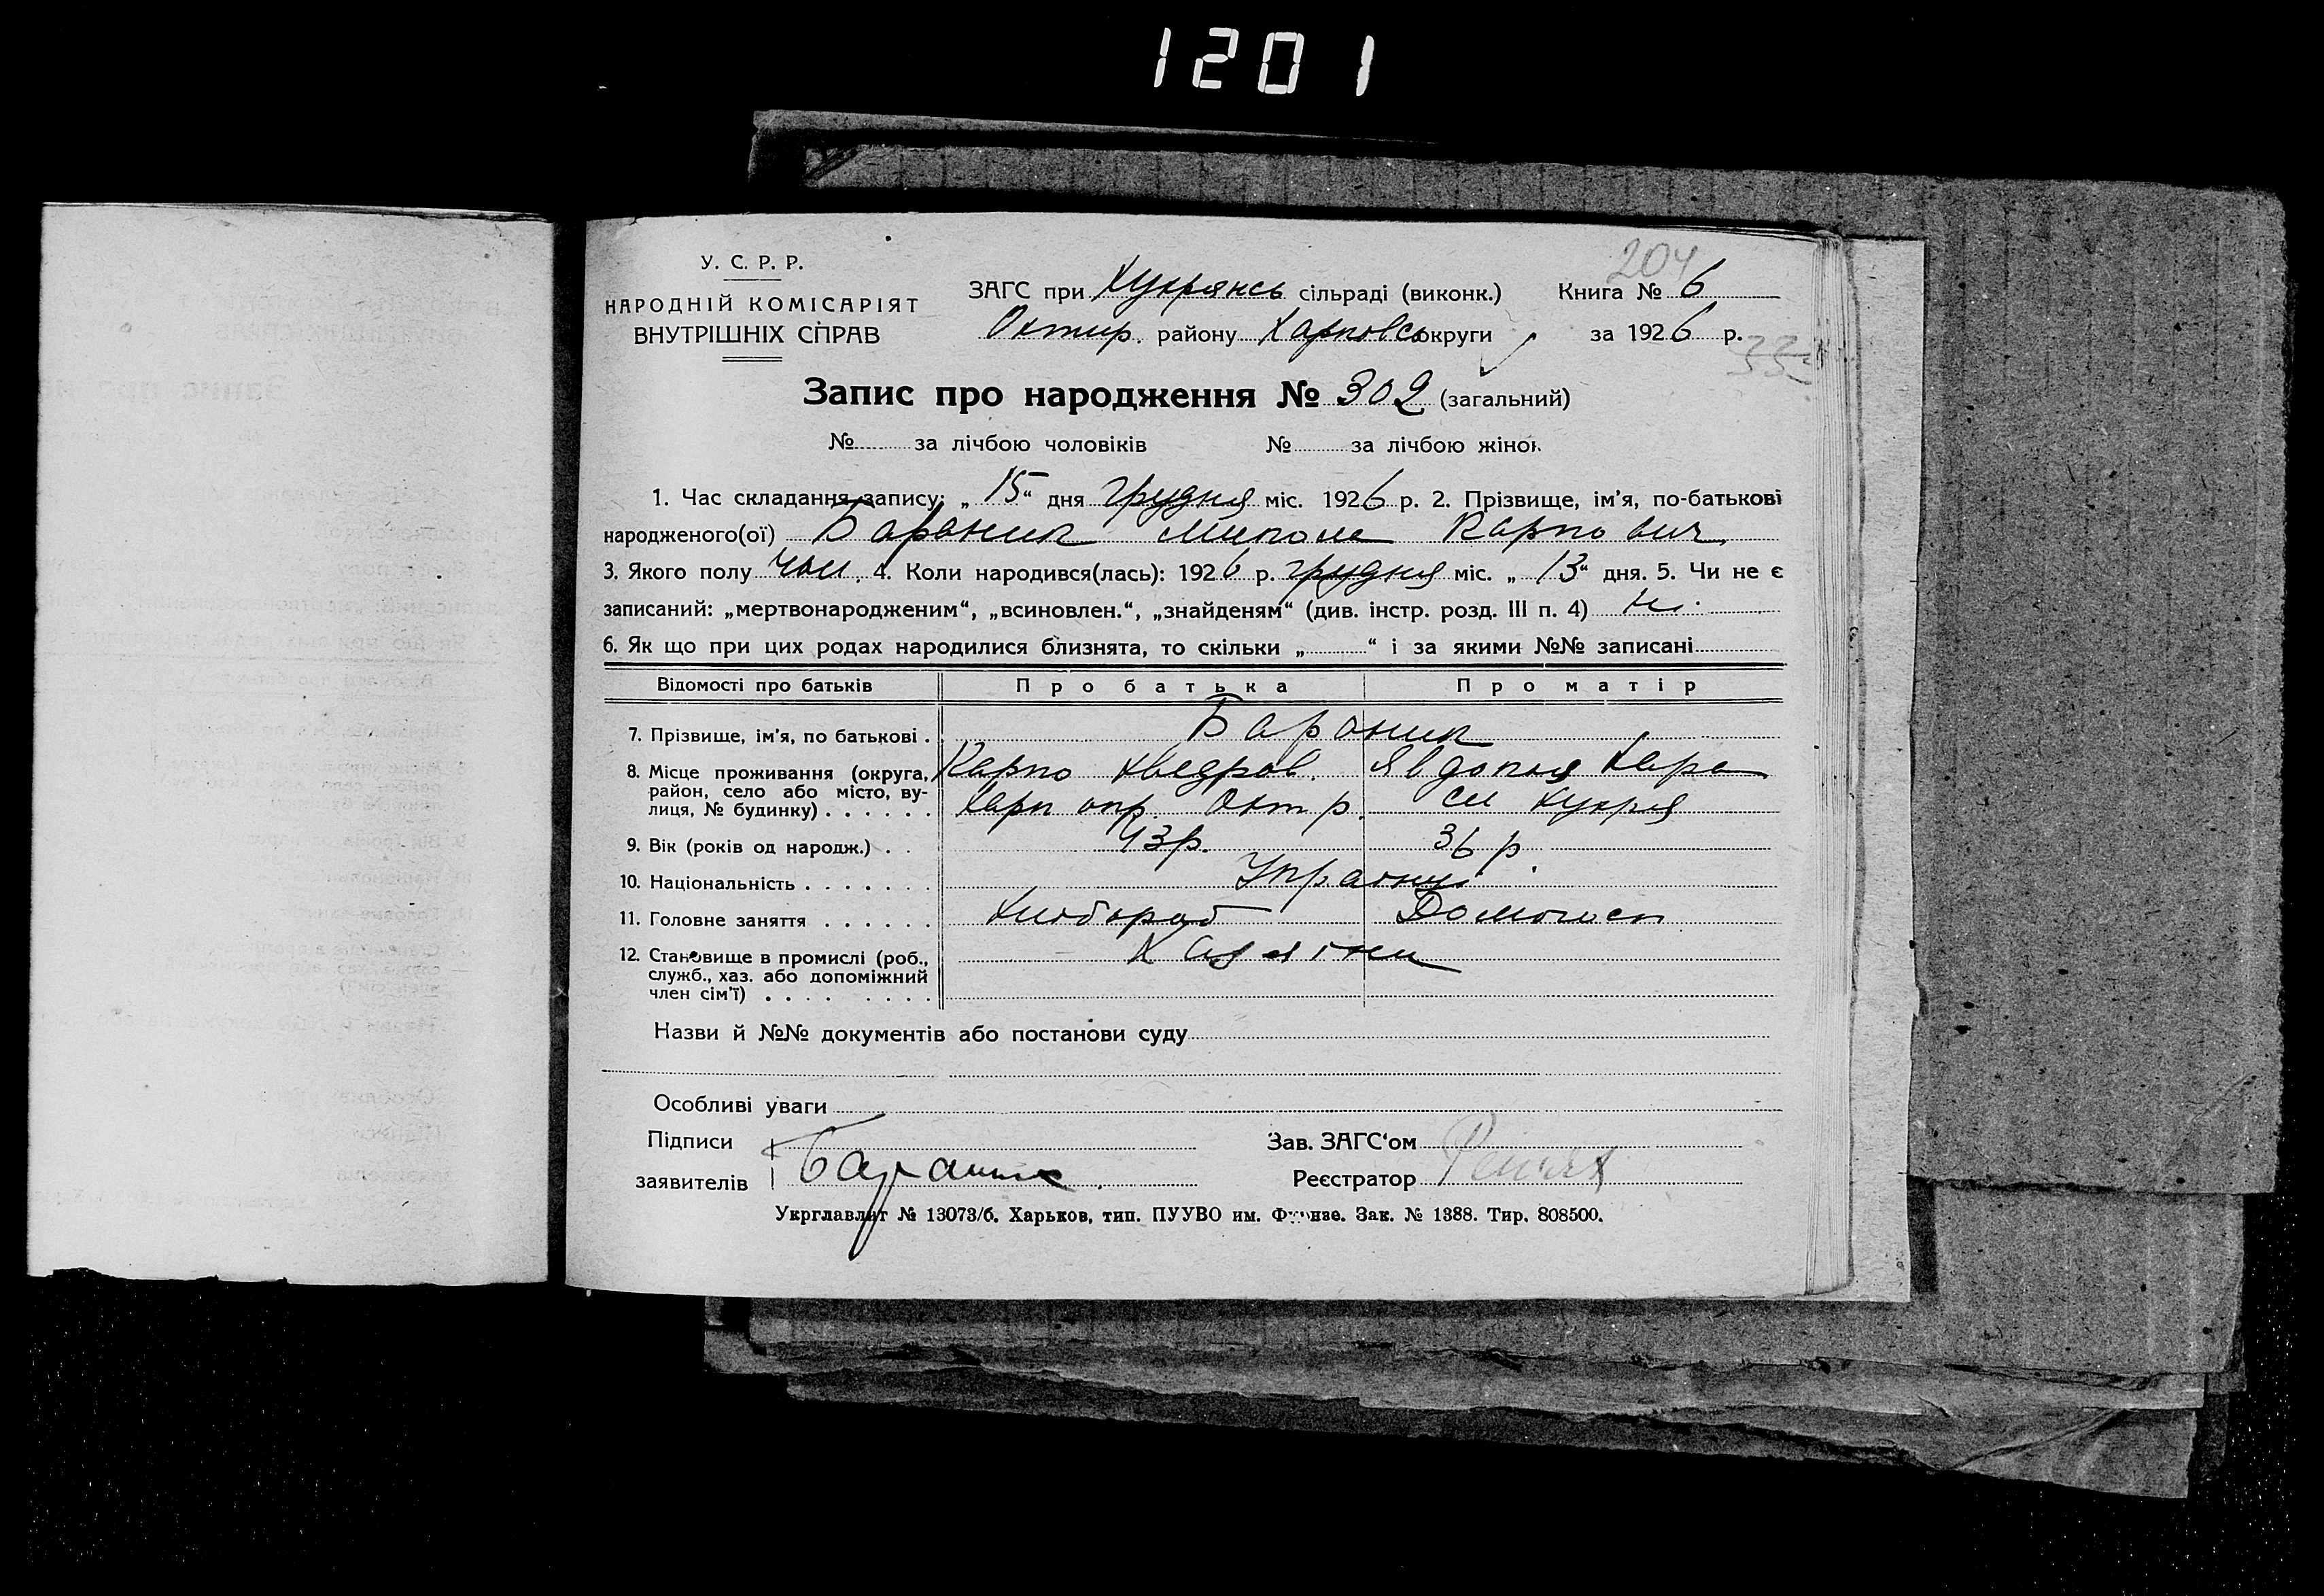 1201
204
У. С. Р. Р.
НАРОДНІЙ КОМІСАРІЯТ
ВНУТРІШНІХ СПРАВ
ЗАГС при Хухрянсь сільраді (виконк.) Книга № 6
Охтир. району Харковсь округи за 1926 р.
Запис про народження № 302 (загальний)
№ за лічбою чоловіків № за лічбою жінок
1. Час складання запису: „15“ дня грудня міс. 1926 р. 2. Прізвище, ім’я, по-батькові
народженого(ої) Бараник Микола Карпович
3. Якого полу чол. 4. Коли народився(лась): 1926 р. грудня міс. „13“ дня. 5. Чи не є
записаний: „мертвонародженим“, „всиновлен.“, „знайденям“ (див. інстр. розд. III п. 4) ні.
6. Як що при цих родах народилися близнята, то скільки „ “ і за якими №№ записані
Відомості про батьків Про батька Про матір
7. Прізвище, ім’я, по батькові . Бараник
Карпо Хведров. Явдокия
8. Місце проживання (округа, район, село або місто, вулиця, № будинку) . . . . . . Харк окр. Охт р. сл Хухря
9. Вік (років од народж.) . . 43р. 36 р.
10. Національність . . . . . . . Україн
11. Головне заняття . . . . . . Хлібороб Домогосп
12. Становище в промислі (роб., служб., хаз. або допоміжний член сім’ї) . . . . . . . . Хазяїни
Назви й №№ документів або постанови суду
Особливі уваги
Підписи
заявителів Бараник
Зав. ЗАГС‘ом
Реєстратор
Укрглавліт № 13073/б. Харьков, тип. ПУУВО им. Фрунзе. Зак. № 1388. Тир. 808500.